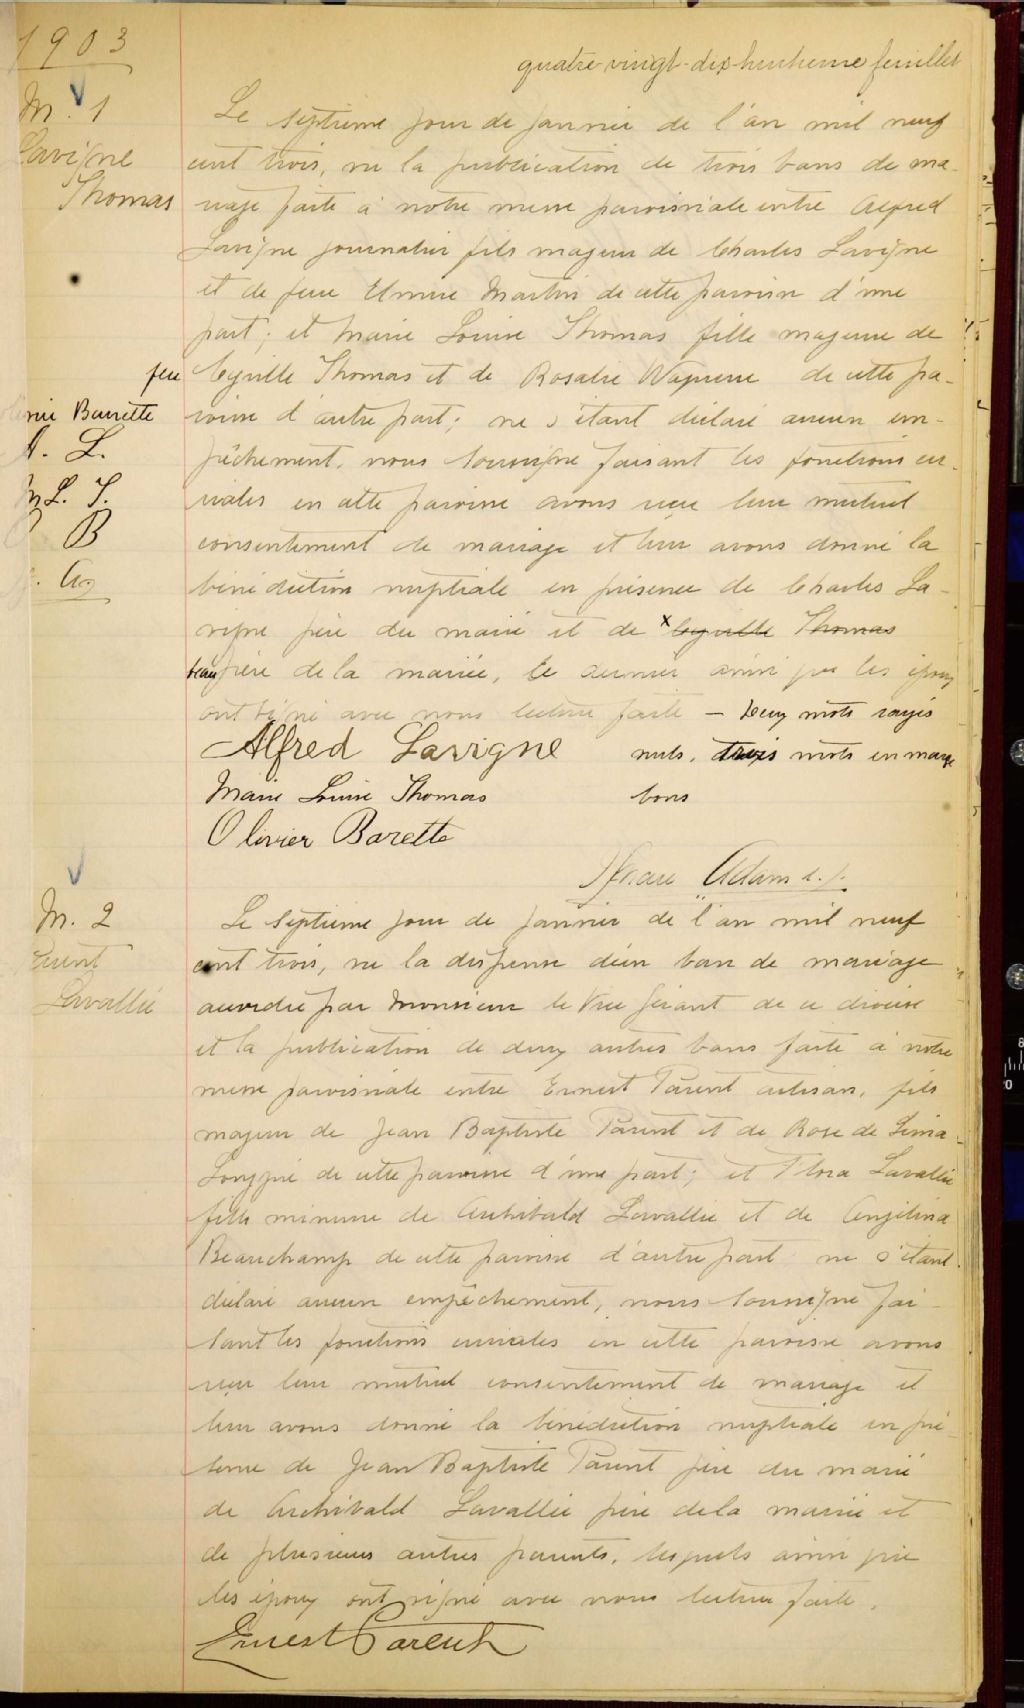 1903
quatre-vingt-dix-huitième feuillet
M. 1
Lavigne
Thomas
Le septième jour de janvier de l'an mil neuf
cent trois, vu la publication de trois bans de ma-
riage faite à notre messe paroissiale entre Alfred
Lavigne journalier fils majeur de Charles Lavigne
et de feue Martin de cette paroisse d'une
part; et Marie Louise Thomas fille majeure de
feu Cyrille Thomas et de Rosalie de cette pa-
roisse d'autre part; ne s'étant déclaré aucun em-
pêchement, nous soussigné faisant les fonctions cu-
riales en cette paroisse avons reçu leur mutuel
consentement de mariage et leur avons donné la
bénédiction nuptiale en présence de Charles La-
vigne père du marié et de x Cyrille Thomas
beau père de la mariée, le dernier ainsi que les époux
ont signé avec nous lecture faite — Deux mots rayés
nuls, trois mots en marge
bons
Barrette
A. L.
M L. T.
B
A.
Alfred Lavigne
Marie Louise Thomas
Olivier Barette
Adam
M. 2
Parent
Lavallée
Le septième jour de janvier de l'an mil neuf
cent trois, vu la dispense d'un ban de mariage
accordée par Monsieur le Vice gérant de ce diocèse
et la publication de deux autres bans faite à notre
messe paroissiale entre Ernest Parent artisan, fils
majeur de Jean Baptiste Parent et de Rose de Lima
Longpré de cette paroisse d'une part; et Flora Lavallée
fille mineure de Archibald Lavallée et de Angélina
Beauchamp de cette paroisse d'autre part ne s'étant
déclaré aucun empêchement, nous soussigné fai-
sant les fonctions curiales en cette paroisse avons
reçu leur mutuel consentement de mariage et
leur avons donné la bénédiction nuptiale en pré-
sence de Jean Baptiste Parent père du marié
de Archibald Lavallée père de la mariée et
de plusieurs autres parents, lesquels ainsi que
les époux ont signé avec nous lecture faite.
Ernest Parent